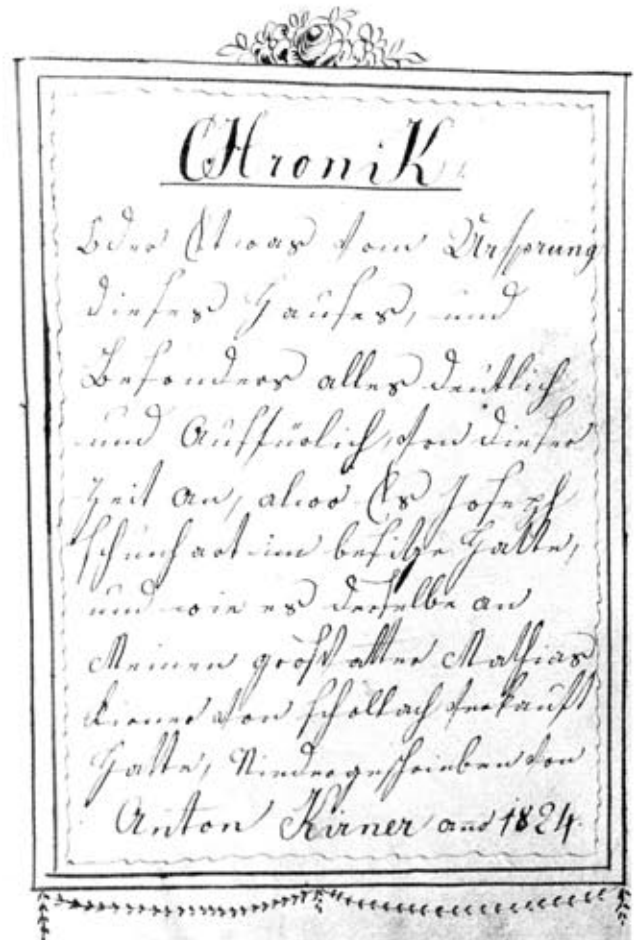 CHroniK
Oder Etwas vom Ursprung
dieses Hauses, und
Besonders alles deütlich
und Ausfürlich, von dieser
Zeit an, alwo Es Joseph
im besitze Hatte,
und wie es derselbe an
Meinen großvatter Mathias
Kirner von schollach verkauft
Hatte, Niedergeschrieben von
Anton Kirner ano 1824.